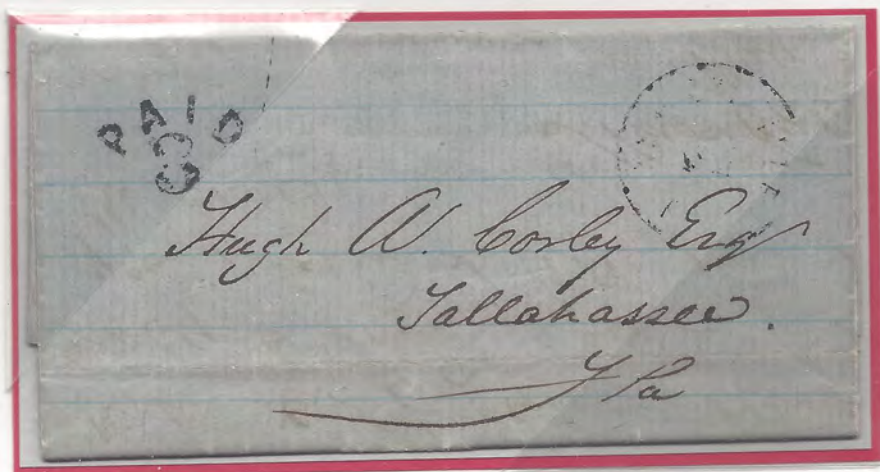 PAID
3
Hugh W. Corley Esq
Tallahassee.
Fla